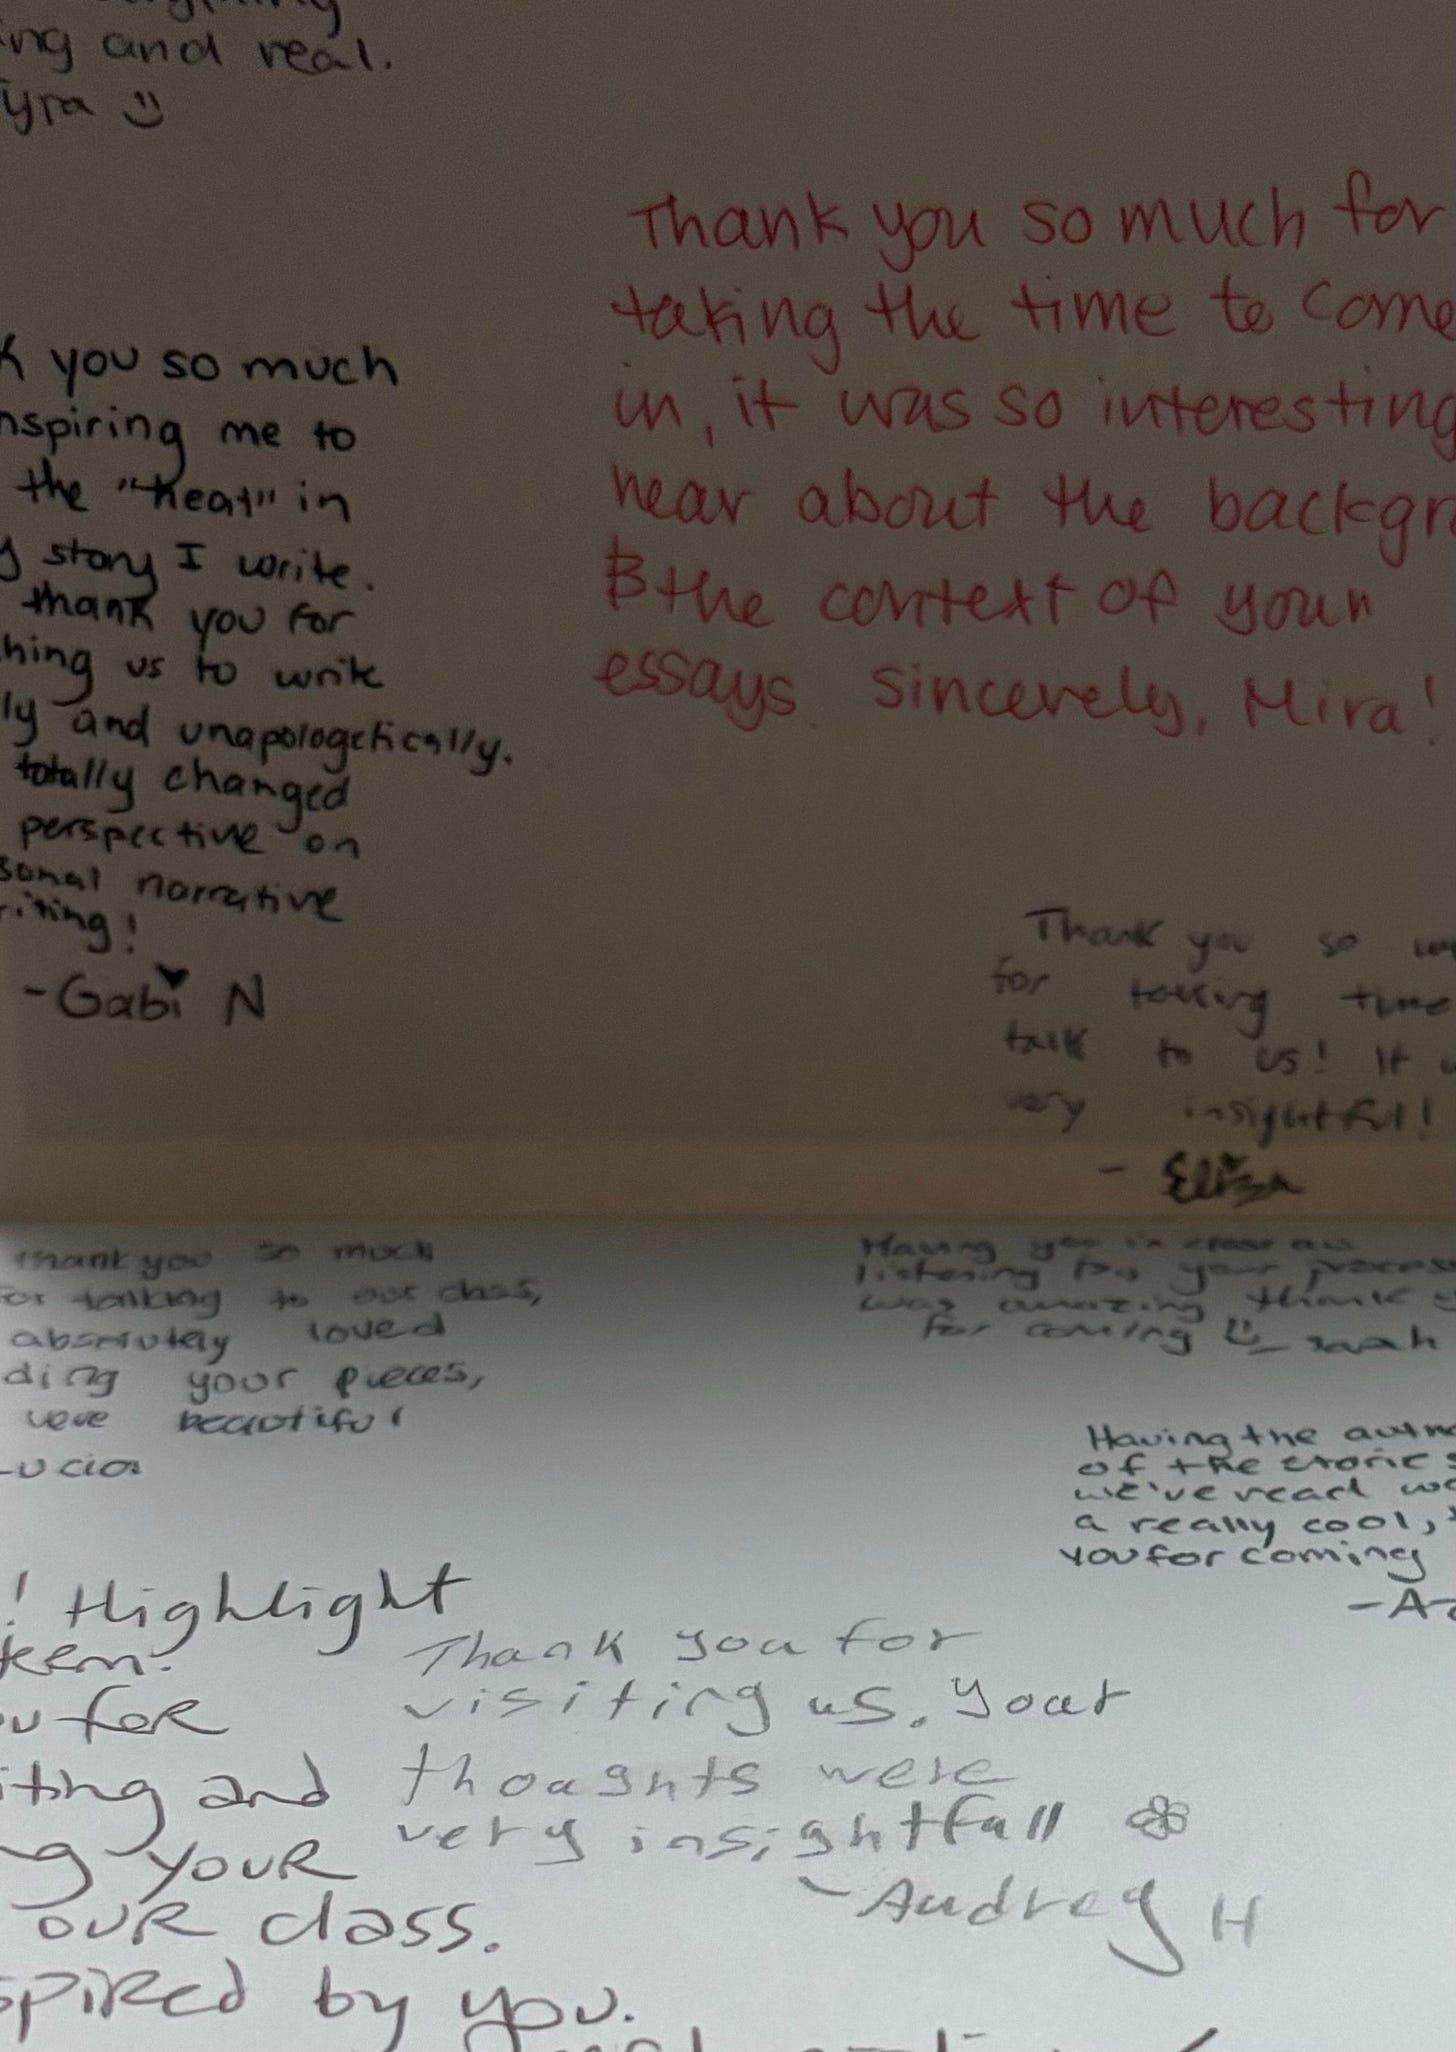 ing and real.
Tyra
Thank you so much for
taking the time to come
in, it was so interesting
hear about the backgr
the context of your
essays. Sincerely, Mira!
k you so much
nspiring me to
the "heat" in
y story I write.
thank you for
hing us to write
ly and unapologetically.
totally changed
perspective on
sonal narrative
riting!
-Gabi N
Thank you so
for taking time
talk to us! It
very insightful!
- Eliza
thank you so much
for talking to our class,
absolutely loved
ding your pieces,
were beautiful
Lucia
Having you in class
listening to your process
was amazing thank
for coming sarah
Having the autho
of the stories
we've read
a really cool,
you for coming
-A
! Highlight
teem.
ou for
iting and
ng your
our class.
spired by you.
Thank you for
visiting us. Your
thoughts were
very insightfull
-Audrey H